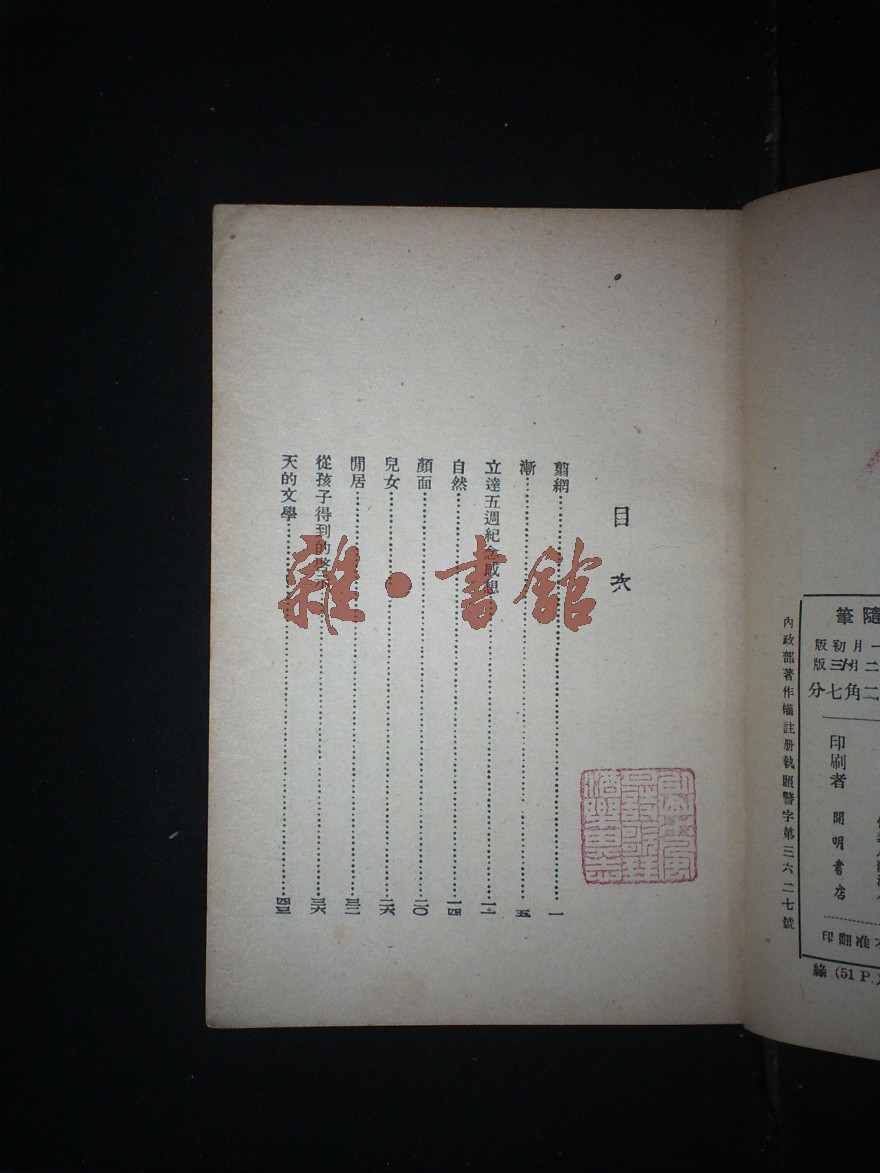 隨筆
一月初版
二月三版
二角七分
印刷者 開明書店
不准翻印
內政部著作權註冊執照警字第三六二七號
綠 (51 P.)
目次
剪網……一
漸……五
立達五週紀念感想……一一
自然……一四
顏面……二〇
兒女……二六
閒居……三二
從孩子得到的啓示……三六
天的文學……四三
雜·書館